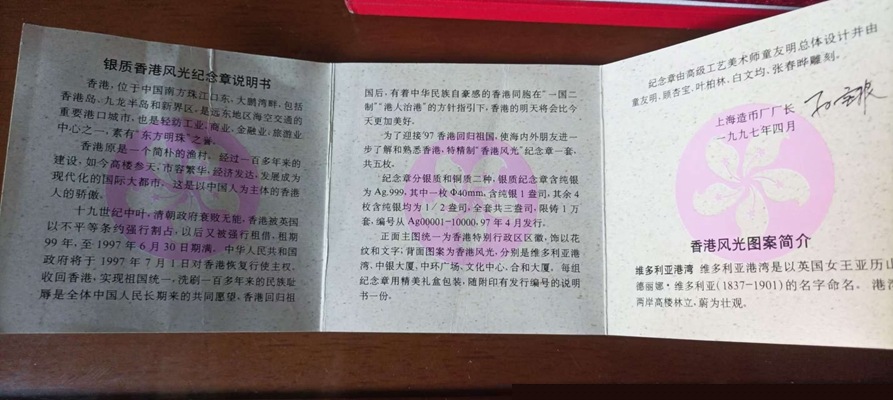 银质香港风光纪念章说明书
香港，位于中国南方珠江口东，大鹏湾畔，包括
香港岛、九龙半岛和新界区，是远东地区海空交通的
重要港口城市，也是轻纺工业、商业、金融业、旅游业
中心之一，素有“东方明珠”之誉。
香港原是一个简朴的渔村，经过一百多年来的
建设，如今高楼叁天，市容繁华，经济发达，发展成为
现代化的国际大都市。这是以中国人为主体的香港
人的骄傲。
十九世纪中叶，清朝政府衰败无能，香港被英国
以不平等条约强行割占，以后又被强行租借，租期
99年，至1997年6月30日期满。中华人民共和国
政府将于1997年7月1日对香港恢复行使主权。
收回香港，实现祖国统一，洗刷一百多年来的民族耻
辱是全体中国人民长期来的共同愿望，香港回归祖
国后，有着中华民族自豪感的香港同胞在“一国二
制”“港人治港”的方针指引下，香港的明天将会比今
天更加美好。
为了迎接’97香港回归祖国，使海内外朋友进一
步了解和熟悉香港，特精制“香港风光”纪念章一套，
共五枚。
纪念章分银质和铜质二种，银质纪念章含纯银
为Ag.999，其中一枚Φ40mm，含纯银1盎司，其余4
枚含纯银均为1/2盎司，全套共三盎司，限铸1万
套，编号从Ag00001-10000，97年4月发行。
正面主图统一为香港特别行政区区徽，饰以花
纹和文字；背面图案为香港风光，分别是维多利亚港
湾，中银大厦，中环广场，文化中心，合和大厦。每组
纪念章用精美礼盒包装，随附印有发行编号的说明
书一份。
纪念章由高级工艺美术师童友明总体设计并由
童友明、顾杏宝、叶柏林、白文均、张春晔雕刻。
上海造币厂厂长
一九九七年四月
香港风光图案简介
维多利亚港湾 维多利亚港湾是以英国女王亚历山
德丽娜·维多利亚(1837-1901)的名字命名。港湾
两岸高楼林立，蔚为壮观。